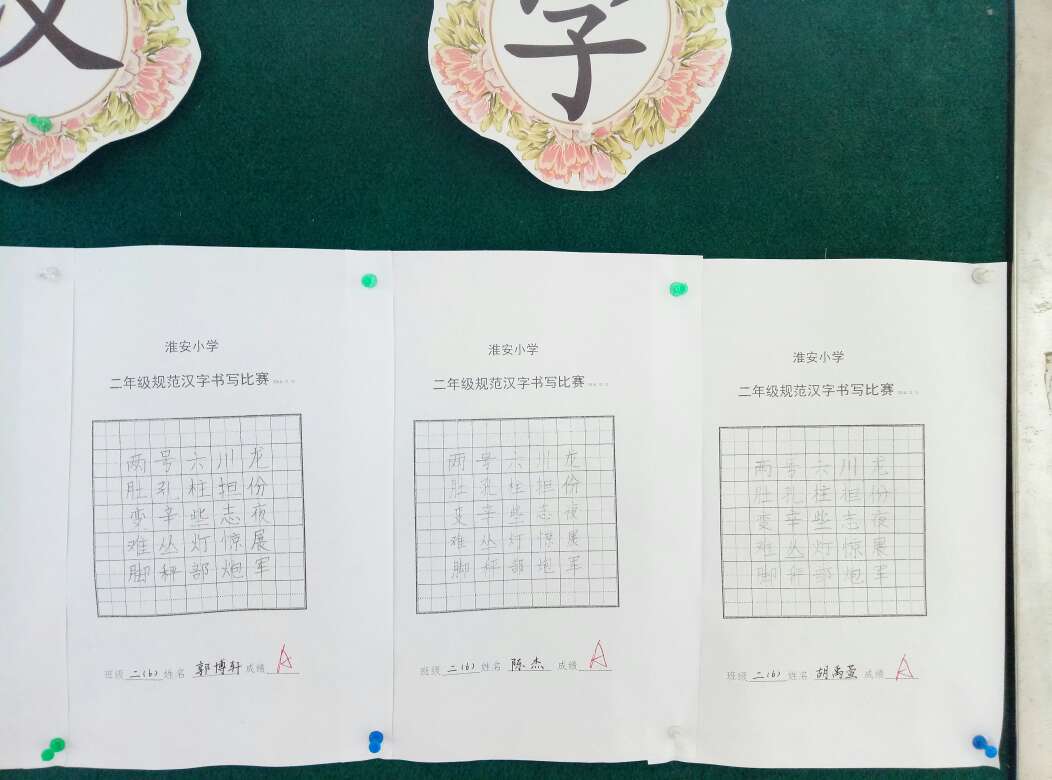 字
淮安小学
二年级规范汉字书写比赛
两号六川龙
肚孔柱担份
变辛些志夜
难丛灯惊展
脚秤部炮军
班级 二(6) 姓名 郭博轩 成绩 A
淮安小学
二年级规范汉字书写比赛
两号六川龙
肚孔柱担份
变辛些志夜
难丛灯惊展
脚秤部炮军
班级 二(6) 姓名 陈杰 成绩 A
淮安小学
二年级规范汉字书写比赛
两号六川龙
肚孔柱担份
变辛些志夜
难丛灯惊展
脚秤部炮军
班级 二(6) 姓名 胡禹萱 成绩 A